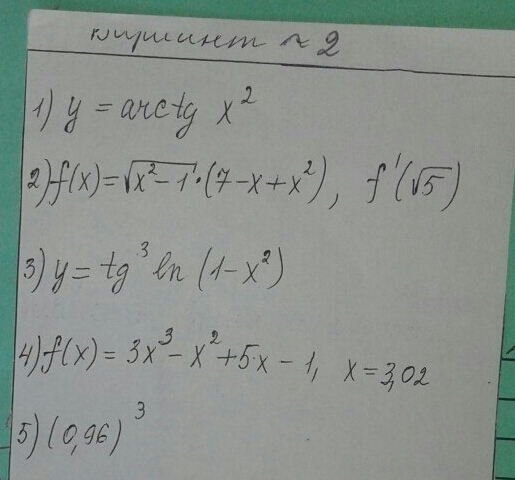 вариант ~ 2
1) y = arctg x²
2) f(x) = √(x² - 1) · (7 - x + x²), f'(√5)
3) y = tg³ ln (1 - x²)
4) f(x) = 3x³ - x² + 5x - 1, x = 3,02
5) (0,96)³